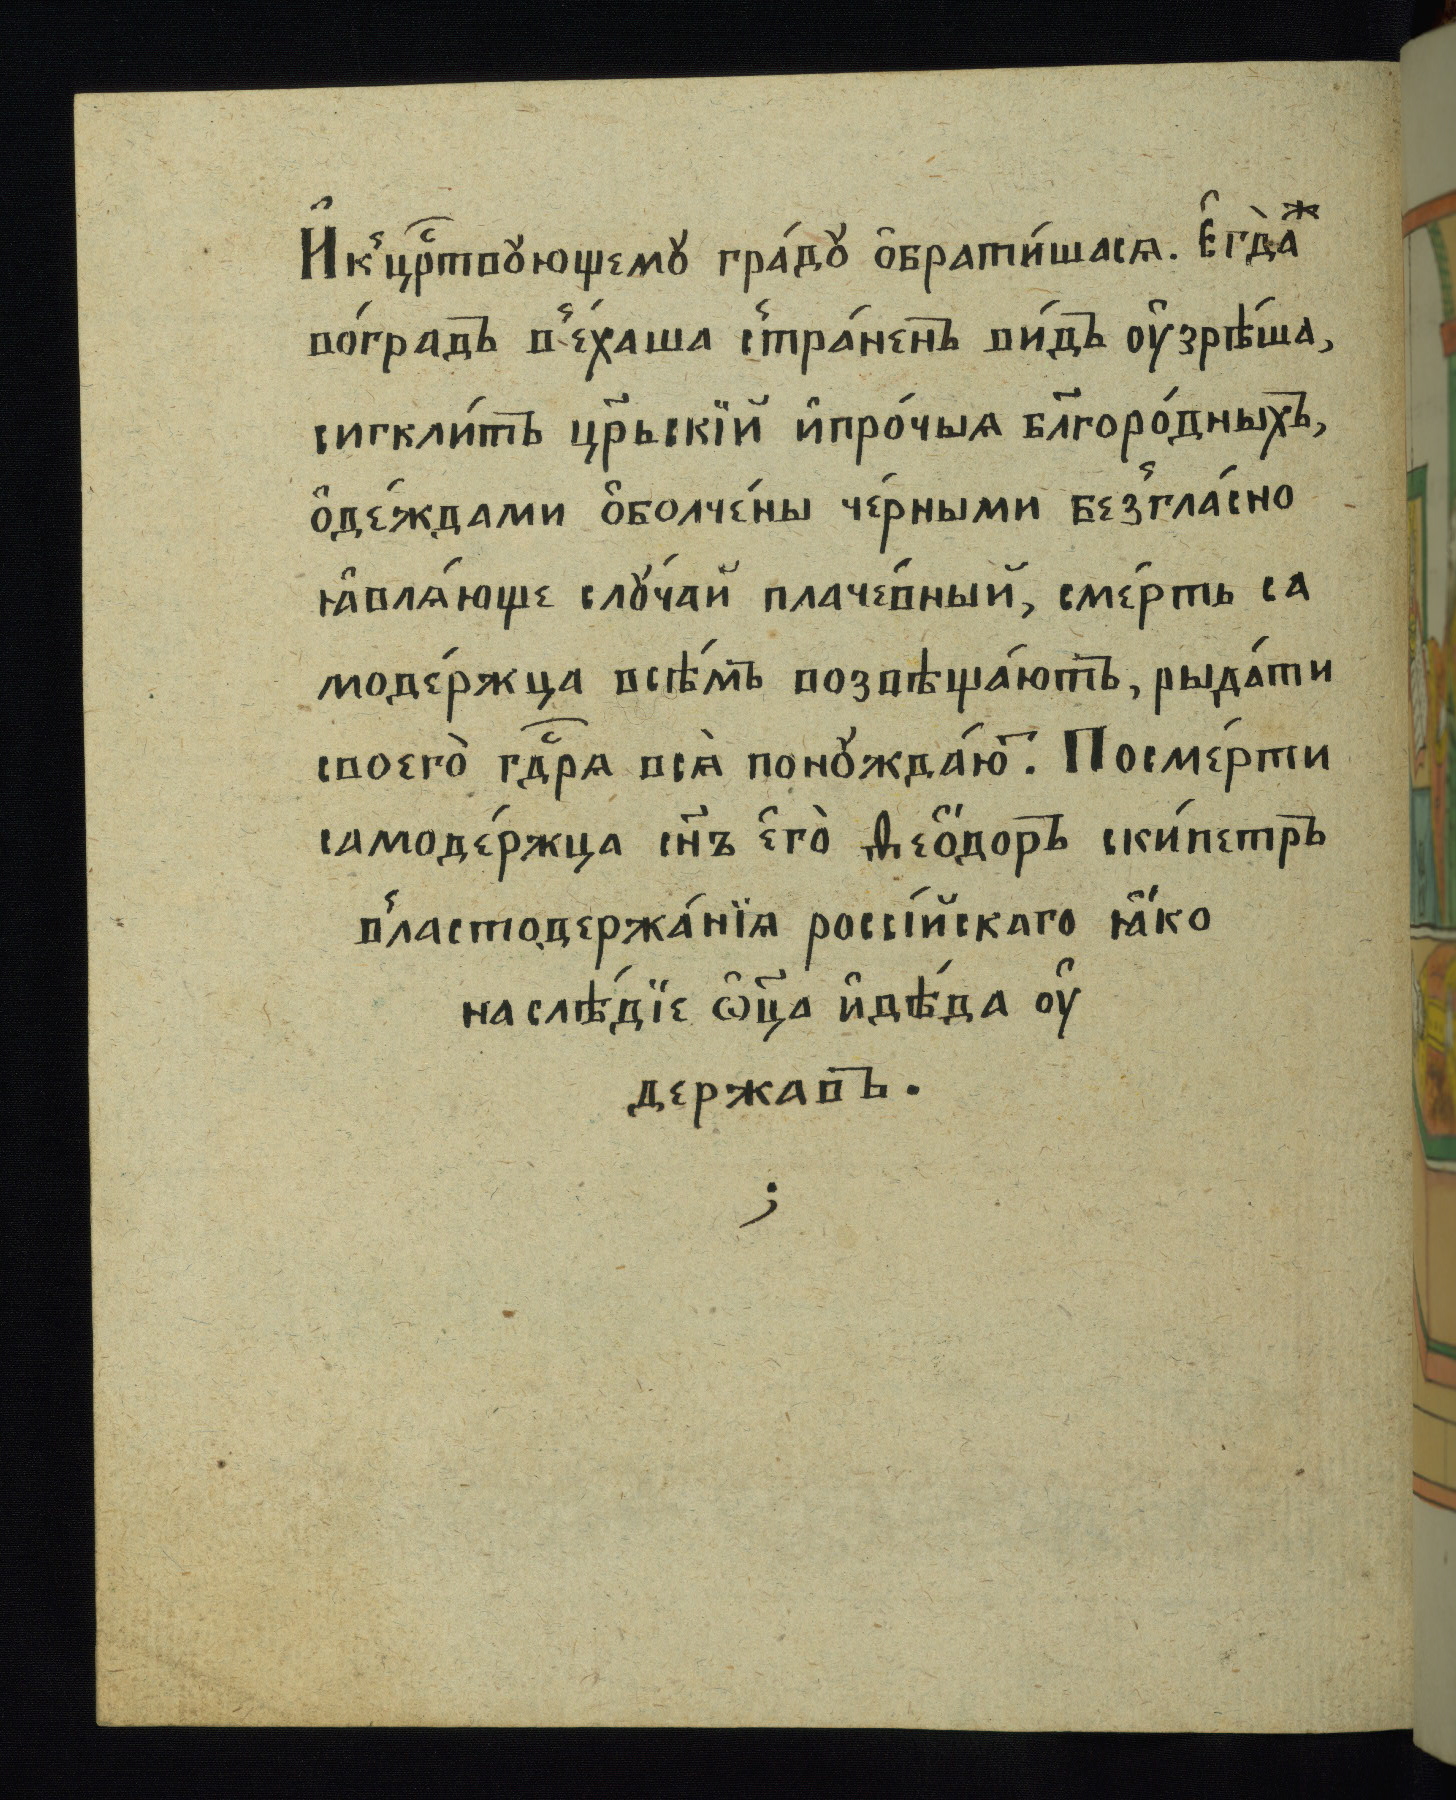 И҆ к̾ црⷭ҇твꙋющемꙋ гра́дꙋ ѻ҆брати́шасѧ. Е҆гда̀ⷤ
во́градъ в̾е́хаша с̾тра́ненъ ви́дъ ᲂу҆зрѣ́ша,
сигкли́тъ цр҃ьскїй и҆про́чыѧ бл҃горо́дныхъ,
ѻ҆де́ждами ѻ҆болче́ны че́рными без̾гла́сно
ꙗ҆влѧ́юще слꙋ́чай плаче́вный, сме́рть са
моде́ржца всѣ́мъ возвѣща́ютъ, рыда́ти
своего̀ гдⷭ҇рѧ всѧ̀ понꙋжда́ю҃. Посме́рти
самоде́ржца сн҃ъ є҆го̀ Ѳео́доръ ски́петръ
в̾ластодержа́нїѧ россі́йскаго ꙗ҆́ко
наслѣ́дїе ѡ҆ц҃а и҆дѣ́да ᲂу҆
державъ.
;